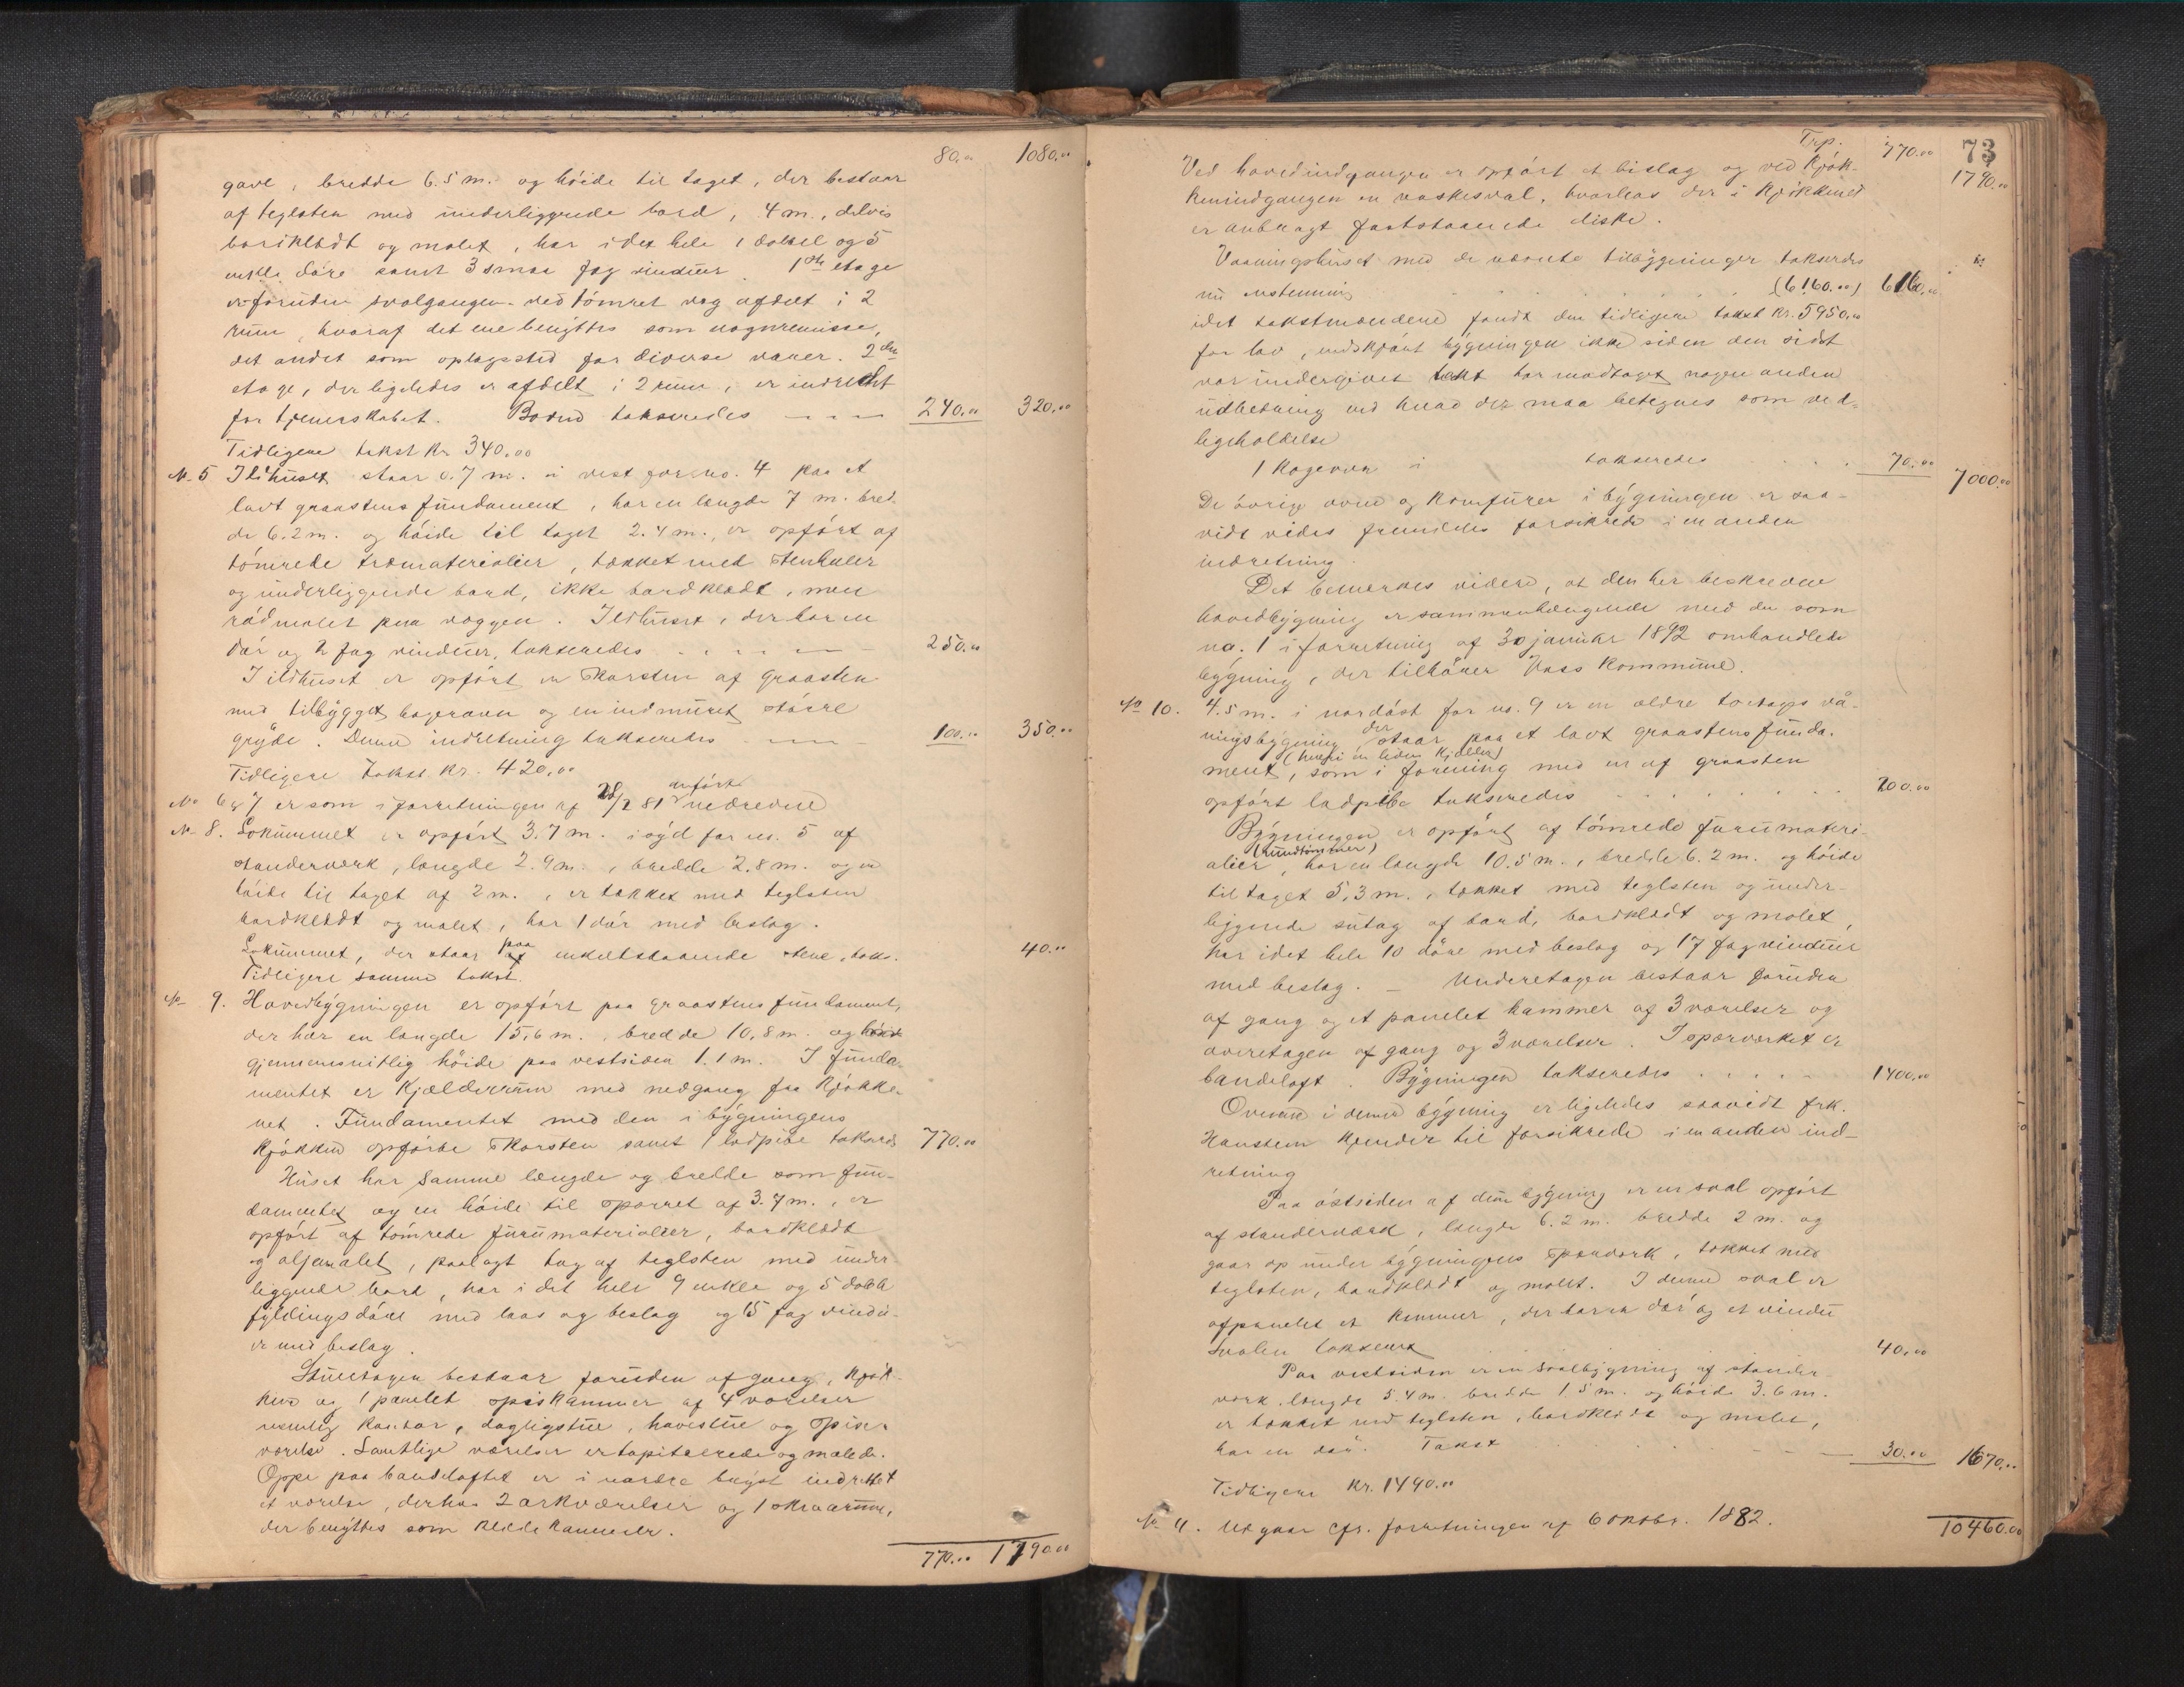 80.00 1080.00
gavl, bredde 6.5 m. og höide til taget, der bestaar
af teglsten med underliggende bord, 4 m., delvis
bordklædt og malet, har i det hele 1 dobbel og 5
enkle döre samt 3 smaa fag vinduer. 1ste etage
er foruden svalgangen ved tömret væg afdelt i 2
rum, hvoraf det ene benyttes som vognremisse,
det andet som oplagssted for diverse varer. 2den
etage, der ligeledes er afdelt i 2 rum, er indrettet
for tjenerskabet. Boden takseredes 240.00 320.00
Tidligere takst kr. 340.00
No 5 Ildhuset staar 0.7 m. i vest for no. 4 paa et
lavt graastens fundament, har en længde 7 m. bred-
de 6.2 m. og höide til taget 2.4 m., er opfört af
tömrede træmaterialier, tækket med stenheller
og underliggende bord, ikke bordklædt, men
rödmalet paa væggen. Ildhuset, der har en
dör og 2 fag vinduer, takseredes 250.00
I ildhuset er opfört en skorsten af graasten
med tilbygget bagerovn og en indmuret större
gryde. Denne indretning takseredes 100.00 350.00
Tidligere takst kr. 420.00
No 6 & 7 er som i forretningen af 28/2 81 anfört nedrevne
No 8. Lokummet er opfört 3.7 m. i syd for no. 5 af
standerværk, længde 2.9 m., bredde 2.8 m. og en
höide til taget af 2 m., er tækket med teglsten
bordklædt og malet, har 1 dör med beslag.
Lokummet, der staar paa enkeltstaaende stene, taks. 40.00
Tidligere samme takst.
No 9. Hovedbygningen er opfört paa graastens fundament,
der har en længde 15,6 m., bredde 10,8 m. og
gjennemsnitlig höide paa vestsiden 1.1 m. I funda-
mentet er kjælderrum med nedgang fra kjökke-
net. Fundamentet med den i bygningens
kjökken opförte skorsten samt 1 ladpibe takseres 770.00
Huset har samme længde og bredde som fun-
damentet og en höide til sparret af 3.7 m., er
opfört af tömrede furumaterialier, bordklædt
og oljemalet, paalagt tag af teglsten med under-
liggende bord, har i det hele 9 enkle og 5 doble
fyldingsdöre med laas og beslag og 15 fag vindu-
er med beslag.
Stueetagen bestaar foruden af gang, kjök-
ken og 1 panelet spiskammer af 4 værelser
nemlig kontor, dagligstue, havestue og spise-
værelse. Samtlige værelser er tapitserede og malede.
Oppe paa bandeloftet er i nordre bryst indrettet
et værelse, derhos 2 arkværelser og 1 skraarum,
der benyttes som klædekammer.
770.00 1790.00
73
Trp. 770.00 1790.00
Ved hovedindgangen er opfört et bislag og ved kjök-
kenindgangen en vaskesval, hvorhos der i kjökkenet
er anbragt faststaaende diske.
Vaaningshuset med de nævnte tilbygninger takseredes
nu (6160.00) 6160.00
idet takstmændene fandt den tidligere takst kr. 5950.00
for lav, endskjönt bygningen ikke siden den sidst
var undergivet takst har modtaget nogen anden
udbedring end hvad der maa betegnes som ved-
ligeholdelse
1 kogeovn i takseredes 70.00 7000.00
De övrige ovne og komfurer i bygningen er saa-
vidt vides fremdeles forsikrede i en anden
indretning.
Det bemærkes videre, at den her beskrevne
hovedbygning er sammenhængende med den som
no. 1 i forretning af 30 januar 1892 omhandlede
bygning, der tilhörer Voss kommune.
No 10. 4.5 m. i nordöst for no. 9 er en ældre toetages vå-
ningsbygning der staar paa et lavt graastens funda-
ment, (hvori en liden kjælder) som i forening med en af graasten
opfört ladpibe takseredes 200.00
Bygningen er opfört af tömrede furumateri-
alier (rundtömmer), har en længde 10.5 m., bredde 6.2 m. og höide
til taget 5,3 m., tækket med teglsten og under-
liggende sutag af bord, bordklædt og malet,
har i det hele 10 döre med beslag og 17 fag vinduer
med beslag. – Underetagen bestaar foruden
af gang og et panelet kammer af 3 værelser og
överetagen af gang og 3 værelser. I sparværket er
bandeloft. Bygningen takseredes 1400.00
Ovnene i denne bygning er ligeledes saavidt frk.
Hanstein kjender til forsikrede i en anden ind-
retning
Paa östsiden af denne bygning er en sval opfört
af standerværk, længde 6.2 m. bredde 2 m. og
gaar op under bygningens sparværk, tækket med
teglsten, bordklædt og malet. I denne sval er
afpanelet et kammer, der har en dör og et vindu
Svalen takseres 40.00
Paa vestsiden er en svalbygning af stander-
værk, længde 5.4 m. bredde 1.5 m. og höide 3.6 m.
er tækket med teglsten, bordklædt og malet,
har en dör. Takst 30.00 1670.00
Tidligere kr. 1440.00
No 4. Udgaar cfr. forretningen af 6 oktbr. 1882.
10460.00